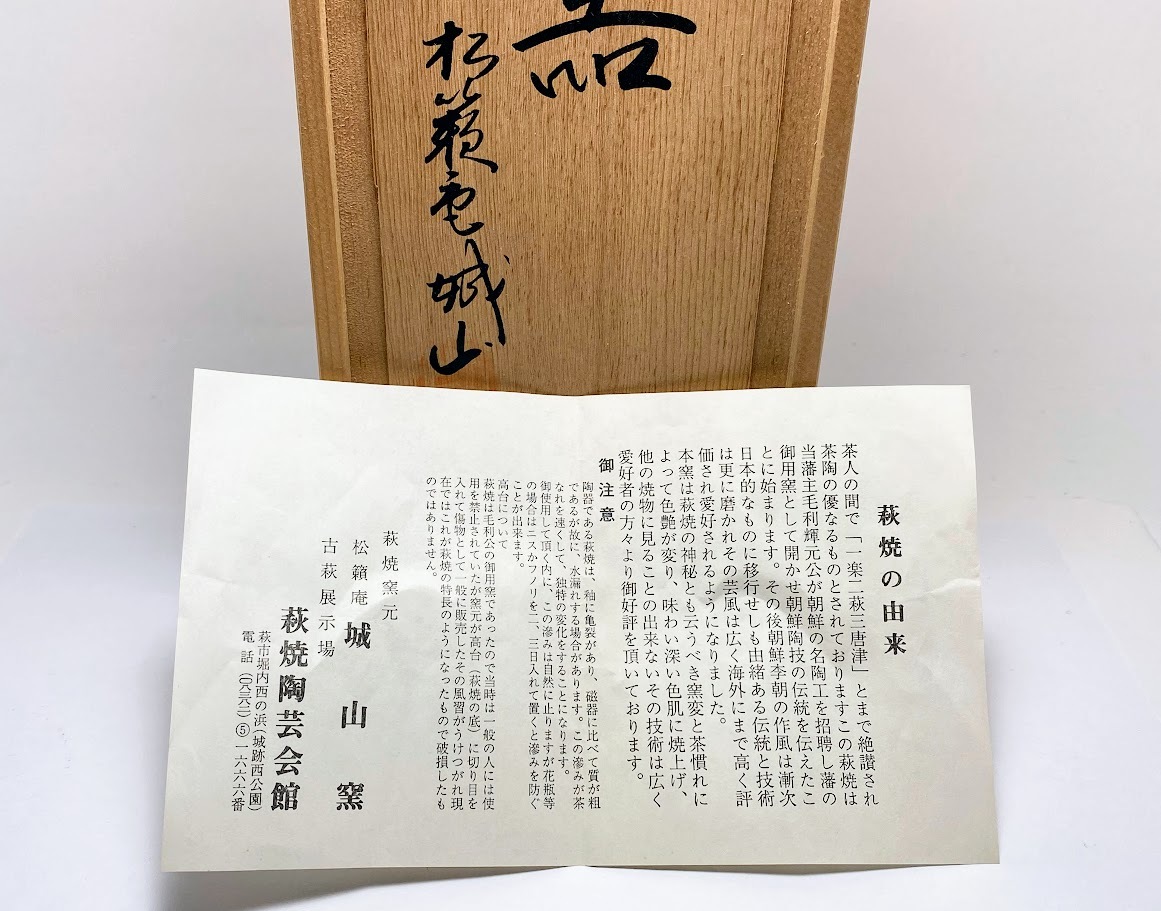 松籟庵城山
萩焼の由来
茶人の間で「一楽二萩三唐津」とまで絶讃され
茶陶の優なるものとされておりますこの萩焼は
当藩主毛利輝元公が朝鮮の名陶工を招聘し藩の
御用窯として開かせ朝鮮陶技の伝統を伝えたこ
とに始まります。その後朝鮮李朝の作風は漸次
日本的なものに移行せしも由緒ある伝統と技術
は更に磨かれその芸風は広く海外にまで高く評
価され愛好されるようになりました。
本窯は萩焼の神秘とも云うべき窯変と茶慣れに
よって色艶が変り、味わい深い色肌に焼上げ、
他の焼物に見ることの出来ないその技術は広く
愛好者の方々より御好評を頂いております。
御注意
陶器である萩焼は、釉に亀裂があり、磁器に比べて質が粗
であるが故に、水漏れする場合があります。この滲みが茶
なれを速くして、独特の変化をすることになります。
御使用して頂く内に、この滲みは自然に止りますが花瓶等
の場合はニスかフノリを二、三日入れて置くと滲みを防ぐ
ことが出来ます。
高台について
萩焼は毛利公の御用窯であったので当時は一般の人には使
用を禁止されていたが窯元が高台（萩焼の底）に切り目を
入れて傷物として一般に販売したその風習がうけつがれ現
在ではこれが萩焼の特長のようになったもので破損したも
のではありません。
萩焼窯元
松籟庵 城山窯
古萩展示場
萩焼陶芸会館
萩市堀内西の浜（城跡西公園）
電話（〇八三八二）⑤一六六六番